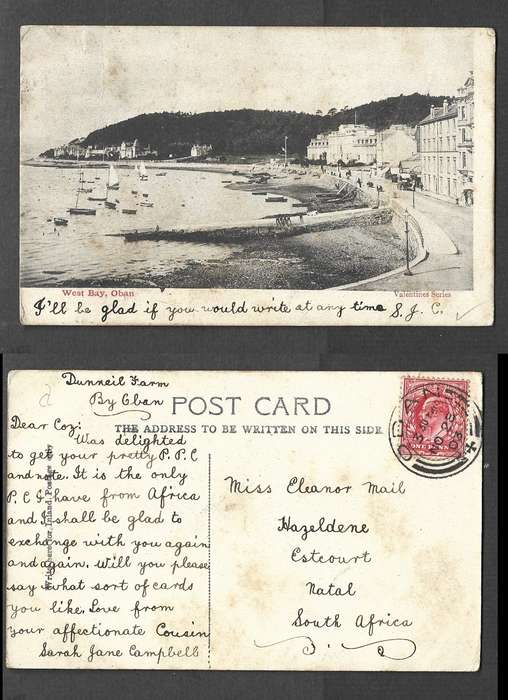 West Bay, Oban
Valentines Series
I'll be glad if you would write at any time S. J. C.
Dunneil Farm
By Oban
POST CARD
THE ADDRESS TO BE WRITTEN ON THIS SIDE
Dear Coz:
Was delighted
to get your pretty P. P. C
and note. It is the only
P. C I have from Africa
and I shall be glad to
exchange with you again
and again. Will you please
say what sort of cards
you like. Love from
your affectionate Cousin
Sarah Jane Campbell
Miss Eleanor Mail
Hazeldene
Estcourt
Natal
South Africa
OBAN
ONE PENNY